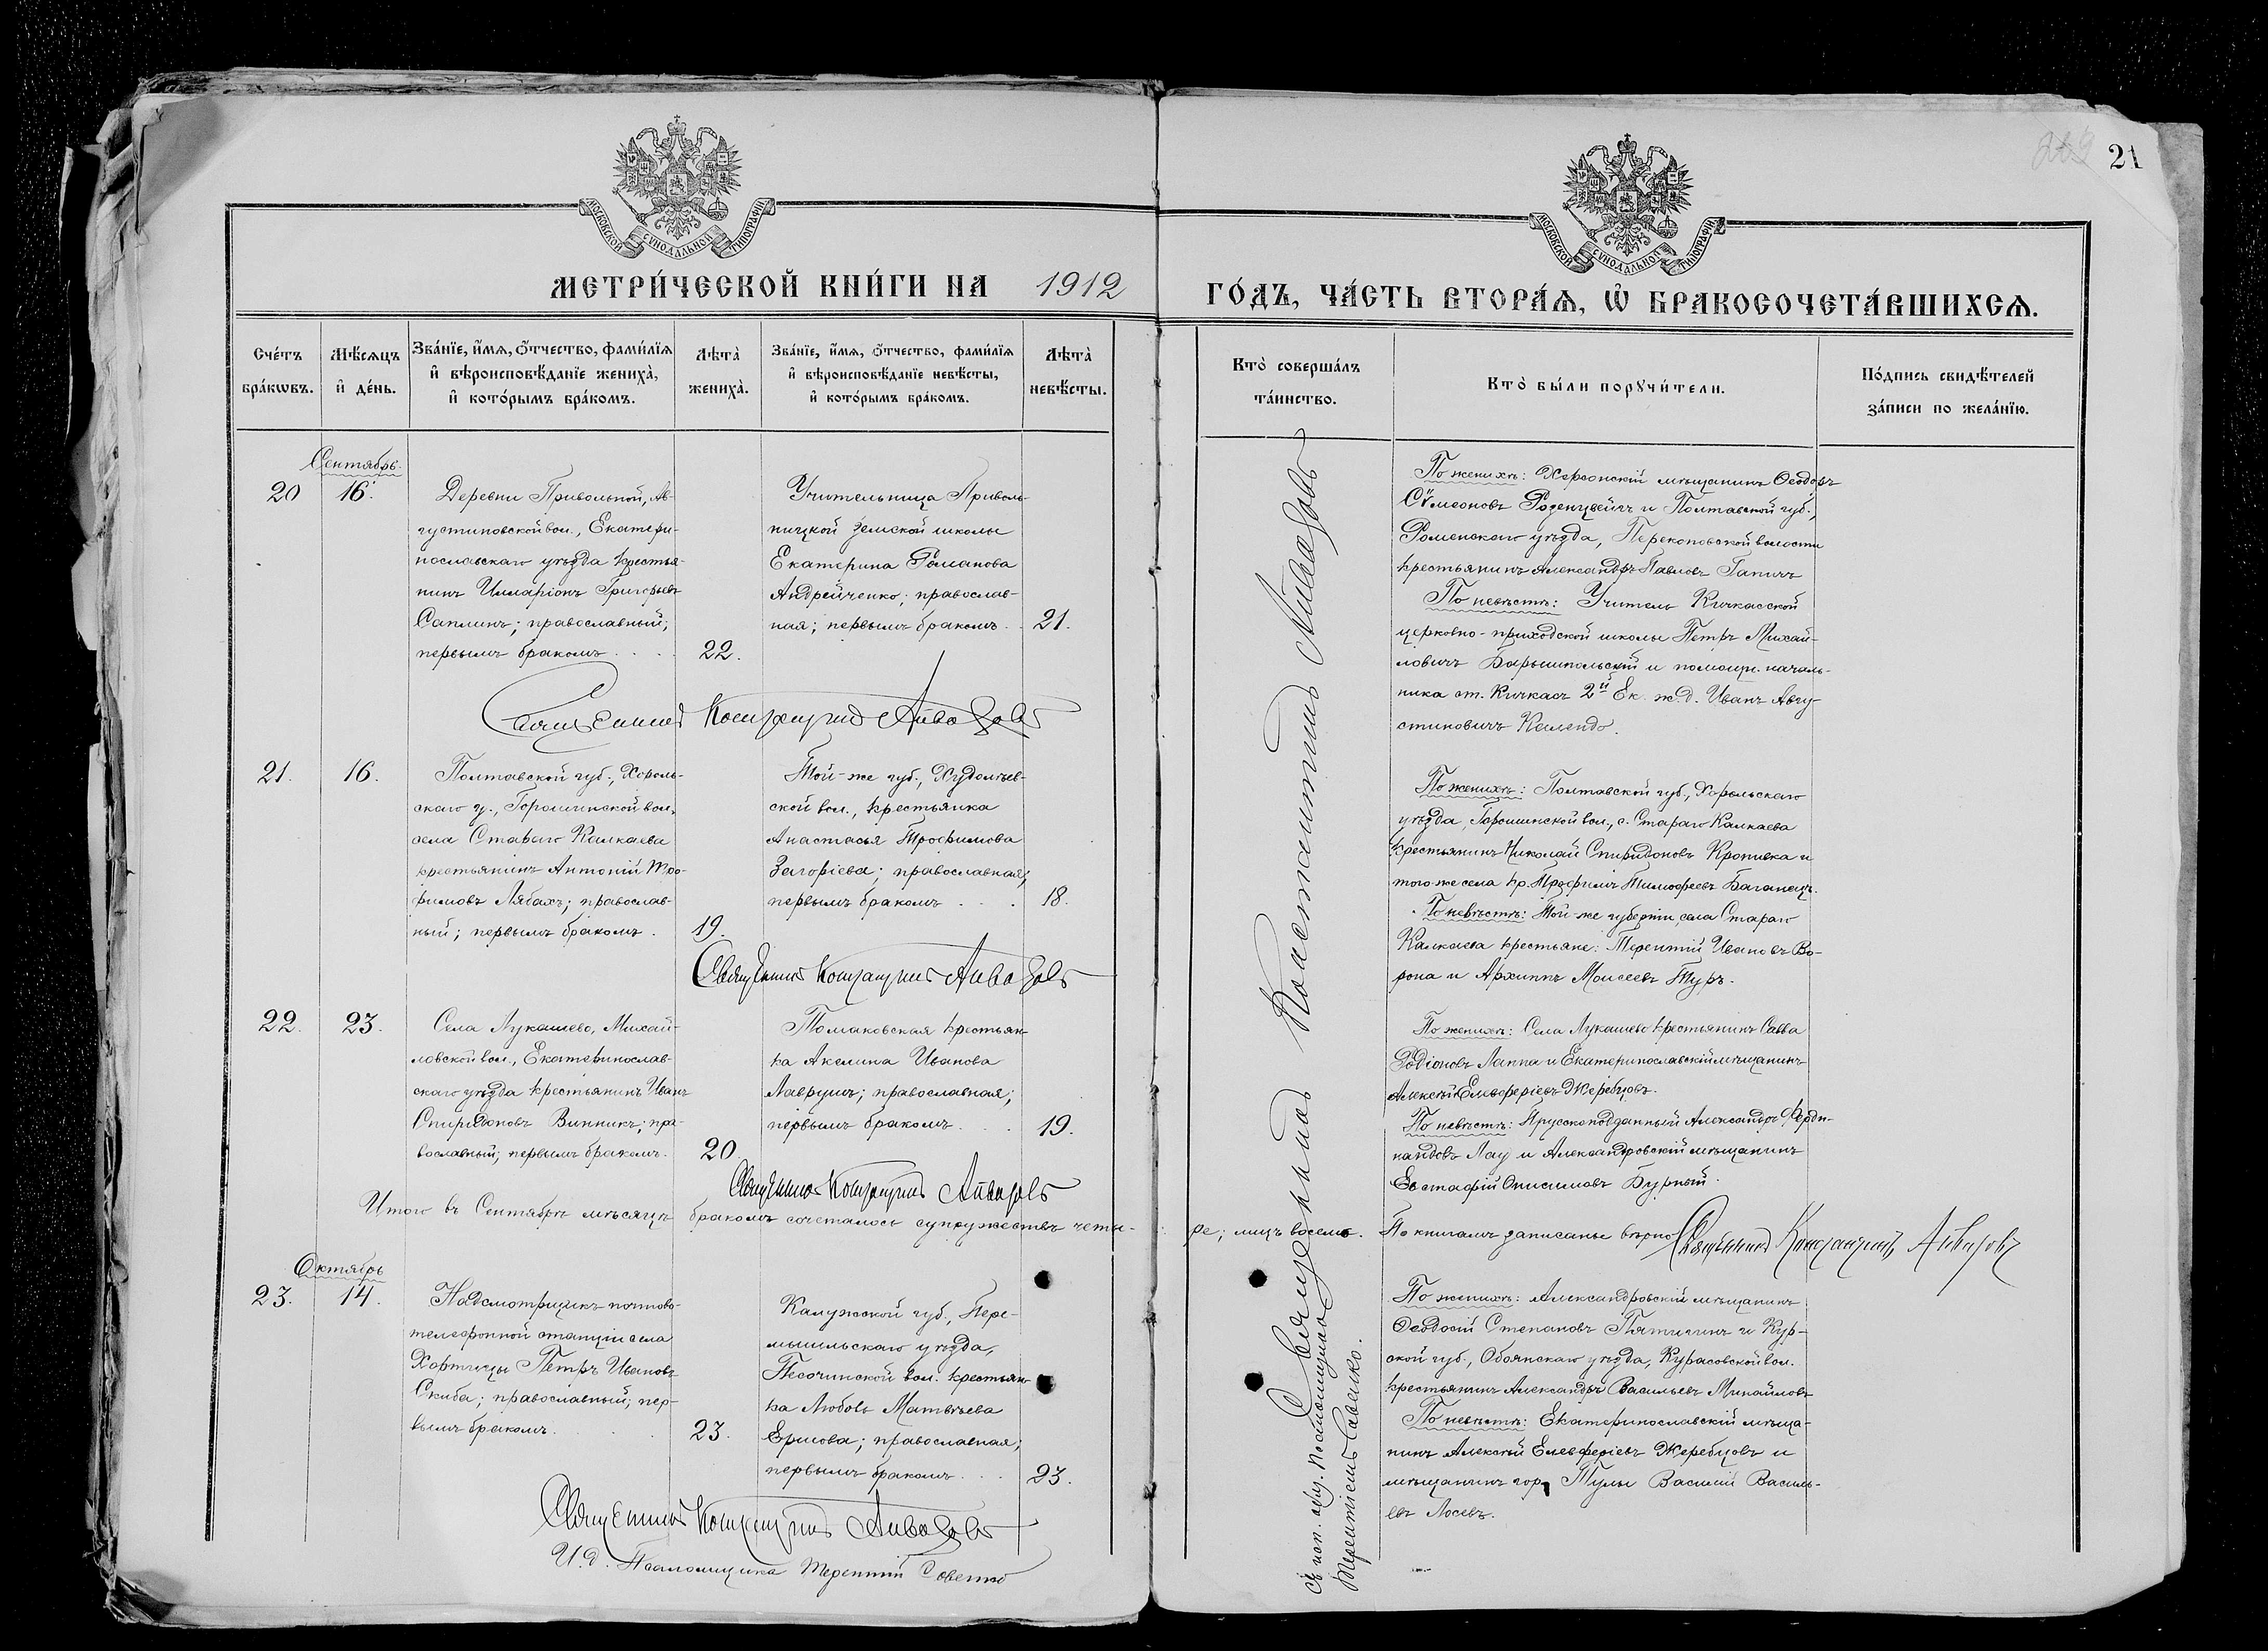 21
МОСКОВСКОЙ СѴНОДАЛЬНОЙ ТИПОГРАФІИ
МОСКОВСКОЙ СѴНОДАЛЬНОЙ ТИПОГРАФІИ
МЕТРИ́ЧЕСКОЙ КНИ́ГИ НА 1912 ГО́ДЪ, ЧА́СТЬ ВТОРА́Ѧ, Ѽ БРАКОСОЧЕТА́ВШИХСѦ.
Сче́тъ бра́кѡвъ.
Мѣ́сѧцъ и҆ де́нь.
Зва́нїе, и҆́мѧ, ѻ҆́тчество, фами́лїѧ
и҆ вѣроисповѣ́данїе жениха̀,
и҆ кото́рымъ бра́комъ.
Лѣта̀ жениха̀.
Зва́нїе, и҆́мѧ, ѻ҆́тчество, фами́лїѧ
и҆ вѣроисповѣ́данїе невѣ́сты,
и҆ кото́рымъ бра́комъ.
Лѣта̀ невѣ́сты.
Кто̀ соверша́лъ та́инство.
Кто̀ бы́ли порꙋчи́тели.
По́дпись свидѣ́телей
за́писи по жела́нїю.
Сентябрь.
20 16.
Деревни Привольной, Ав-
густиновской вол., Екатери-
нославскаго уѣзда крестья-
нинъ Илларіонъ Григорьевъ
Саплинъ; православный;
первымъ бракомъ
22.
Учительница Приволь-
ницкой земской школы
Екатерина Романова
Андрейченко; православ-
ная; первымъ бракомъ
21.
По женихѣ: Херсонскій мѣщанинъ Ѳеодоръ
Сѵмеоновъ Розенцвейгъ и Полтавской губ.,
Роменскаго уѣзда, Перекоповской волости
крестьянинъ Александръ Павловъ Гапичъ
По невѣстѣ: Учитель Кичкасской
церковно-приходской школы Петръ Михай-
ловичъ Барышпольскій и помощн. началь-
ника ст. Кичкасъ 2й Ек. ж.д. Иванъ Авгу-
стиновичъ Келендо.
Священникъ Константинъ Айвазовъ
21. 16.
Полтавской губ., Хороль-
скаго у., Горошинской вол.,
села Стараго Калкаева
крестьянинъ Антоній Тро-
фимовъ Лябахъ; православ-
ный; первымъ бракомъ.
19.
Той-же губ., Худолѣев-
ской вол., крестьянка
Анастасья Трофимова
Загоріева; православная;
первымъ бракомъ
18.
По женихѣ: Полтавской губ., Хорольскаго
уѣзда, Горошинской вол., с. Стараго Калкаева
крестьянинъ Николай Спиридоновъ Кропивка и
того-же села кр. Трофимъ Тимофеевъ Баганецъ.
По невѣстѣ: Той-же губерніи, села Стараго
Калкаева крестьяне: Терентій Ивановъ Во-
рона и Архиппъ Моисеевъ Туръ.
Священникъ Константинъ Айвазовъ
22. 23.
Села Лукашево, Михай-
ловской вол., Екатеринослав-
скаго уѣзда крестьянинъ Иванъ
Спиридоновъ Винникъ; пра-
вославный; первымъ бракомъ.
20.
Томаковская крестьян-
ка Акелина Иванова
Лаврушъ; православная;
первымъ бракомъ
19.
По женихѣ: Села Лукашево крестьянинъ Савва
Родіоновъ Лаппа и Екатеринославскій мѣщанинъ
Алексѣй Елевферіевъ Жеребцовъ.
По невѣстѣ: Прусскоподданный Александръ Ферди-
нандовъ Лау и Александровскій мѣщанинъ
Евстафій Онисимовъ Бурный.
Священникъ Константинъ Айвазовъ
Итого въ Сентябрѣ мѣсяцѣ бракомъ сочеталось супружествъ четы-
ре; лицъ восемь. По книгамъ записаны вѣрно Священникъ Константинъ Айвазовъ
Октябрь
23. 14.
Надсмотрщикъ почтово-
телефонной станціи села
Хортицы Петръ Ивановъ
Скиба; православный; пер-
вымъ бракомъ.
23.
Калужской губ., Пере-
мышльскаго уѣзда,
Песочинской вол. крестьян-
ка Любовь Матвѣева
Ершова; православная;
первымъ бракомъ
23.
По женихѣ: Александровскій мѣщанинъ
Ѳеодосій Степановъ Пятигинъ и Кур-
ской губ., Обоянскаго уѣзда, Курасовской вол.
крестьянинъ Александръ Васильевъ Михайловъ
По невѣстѣ: Екатеринославскій мѣща-
нинъ Алексѣй Елевферіевъ Жеребцовъ и
мѣщанинъ гор. Тулы Василій Василь-
евъ Лосевъ.
Священникъ Константинъ Айвазовъ
И. д. Псаломщика Терентій Савенко
Священникъ Константинъ Айвазовъ
съ исп. обяз. псаломщика
Терентіемъ Савенко.